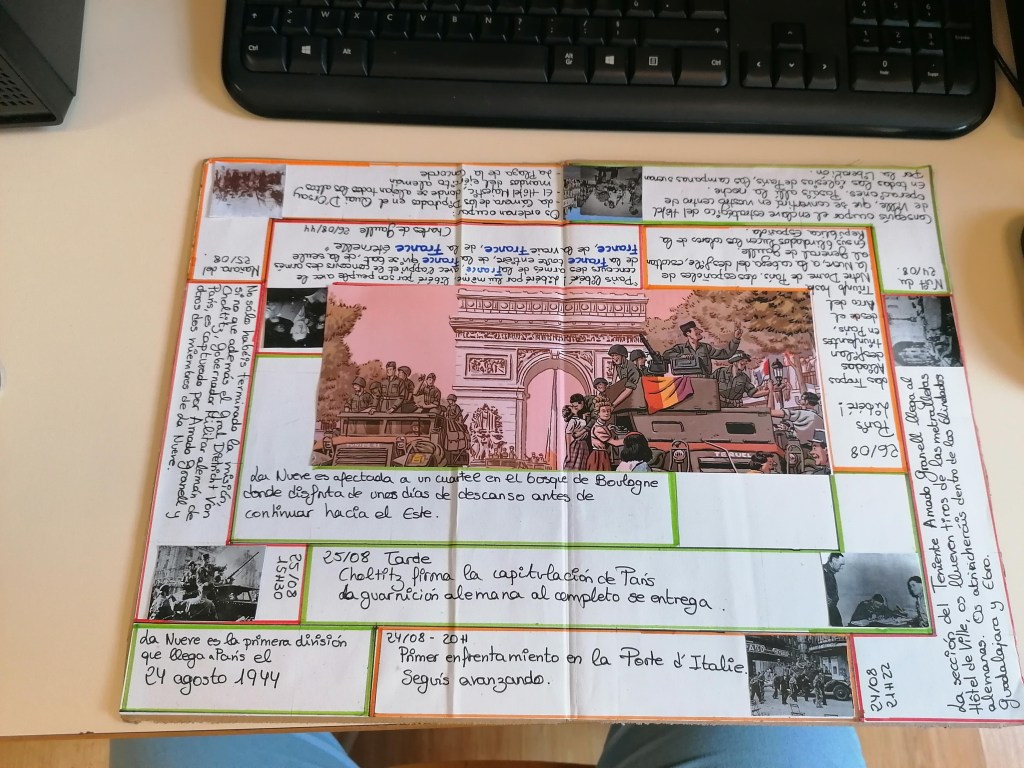 La Nueve es la primera división
que llega a París el
24 agosto 1944
24/08 - 20H
Primer enfrentamiento en la Porte d'Italie.
Seguís avanzando.
24/08
21H22
La sección del Teniente Amado Granell llega al
Hôtel de Ville, os llueven tiros de las metralletas
alemanas. Os atrincheráis dentro de los blindados
Guadalajara y Ebro.
24/08
Conseguís ocupar el enclave estratégico del Hôtel
de Ville, que se convertirá en vuestro centro de
operaciones. Pasáis allí la noche.
En todas las iglesias de París, las campanas suenan
por la liberación.
Os ordenan ocupar:
La Cámara de los Diputados en el Quai D'Orsay
El Hôtel Majestic, donde se alojan todos los altos
mandos del ejército alemán
La Plaza de la Concorde
Mañana del
25/08.
No sólo habéis terminado la misión
si no que además el Gral Dietricht Von
Choltitz, gobernador militar alemán de
París, es capturado por Amado Granell y
otros dos miembros de La Nueve.
25/08
15H30
25/08 Tarde
Choltitz firma la capitulación de París
La guarnición alemana al completo se entrega.
26/08
¡París
libre!
Las tropas
aliadas
desfilan
triunfantes
en París,
desde el
Arco del
Triunfo hasta
Nôtre Dame de París, dos españoles
de La Nueve a la cabeza del desfile, escoltan
al general de Gaulle.
En sus blindados lucen los colores de la
República Española
"Paris libéré! libéré par lui même, libéré par son peuple avec le
concours des armées de la France, avec l'appui et le concours de la
France toute entière, de la France qui se bat, de la seule
France, de la vraie France, de la France éternelle"
Charles de Gaulle 26/08/44
TERUEL
La Nueve es afectada a un cuartel en el bosque de Boulogne
donde disfruta de unos días de descanso antes de
continuar hacia el Este.